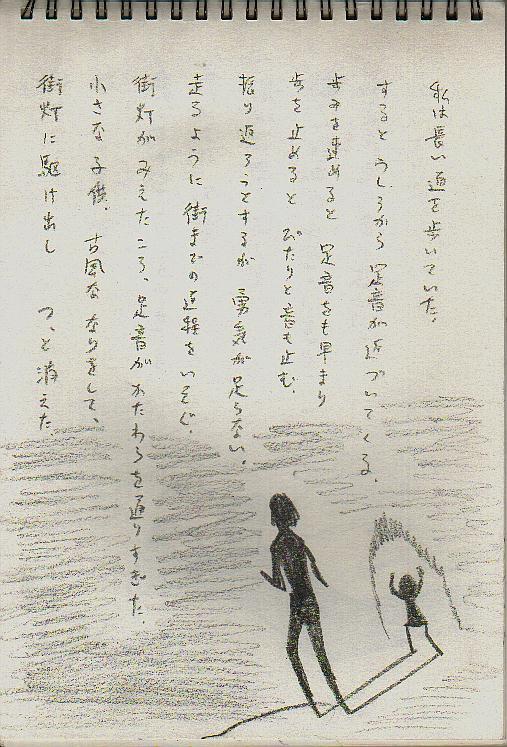 私は長い道を歩いていた。
するとうしろから 足音が近づいてくる。
歩みを速めると 足音をも早まり
歩を止めると ぴたりと音も止む。
振り返ろうとするが 勇気が足らない。
走るように街までの道程をいそぐ。
街灯がみえたころ、足音がかたわらを通りすぎた。
小さな子供。古風ななりをして、
街灯に駆け出し つっと消えた。